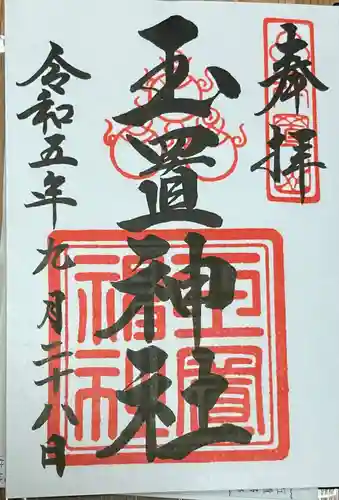 奉拝
玉置神社
令和五年九月二十八日
玉置
神社